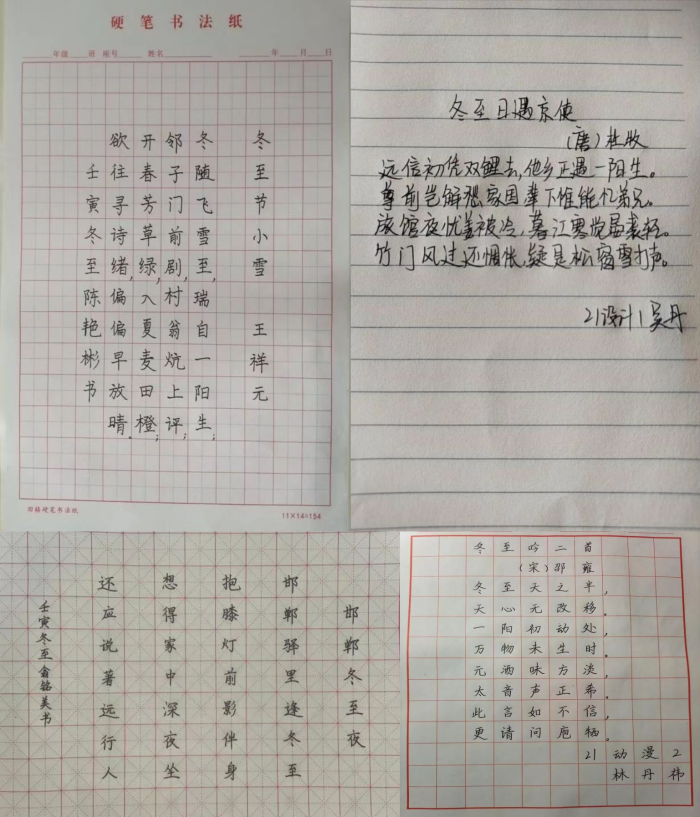 硬笔书法纸
年级 班 座号 姓名 年 月 日
冬至节小雪 王祥元
冬随飞雪至,瑞自一阳生;
邻子门前剧,村翁炕上评;
开春芳草绿,入夏麦田橙;
欲往寻诗绪,偏偏早放晴。
壬寅冬至陈艳彬书
硬笔书法纸
11×14=154
冬至日遇京使
(唐)杜牧
远信初凭双鲤去,他乡正遇一阳生。
尊前岂解愁家国辇下谁能忆弟兄。
旅馆夜忧姜被冷,暮江寒觉晏裘轻。
竹门风过还惆怅,疑是松窗雪打声。
21设计1吴丹
邯郸冬至夜
邯郸驿里逢冬至
抱膝灯前影伴身
想得家中深夜坐
还应说著远行人
壬寅冬至 铭美书
冬至吟二首
(宋)邵雍
冬至天之半,
天心无改移。
一阳初动处,
万物未生时。
元酒味方淡,
太音声正希。
此言如不信,
更请问庖牺。
21动漫2
林丹